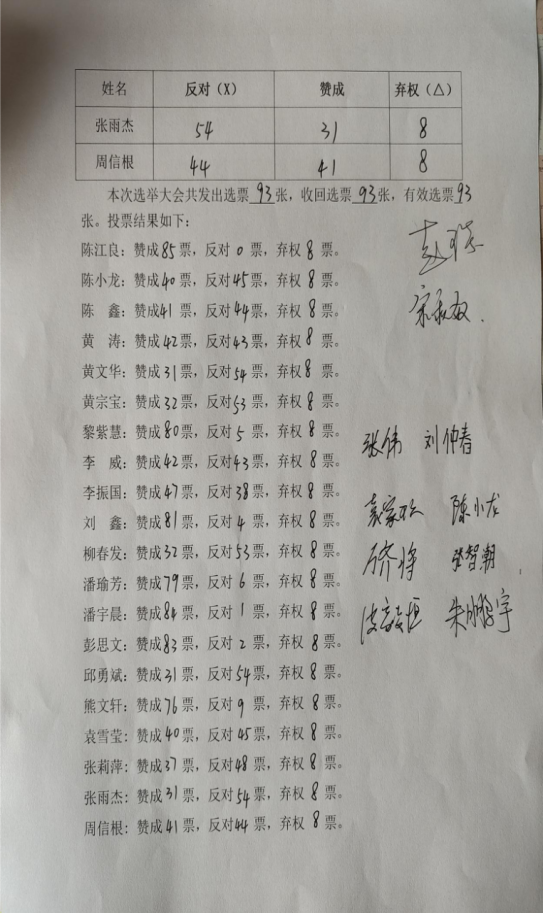 姓名 反对（X） 赞成 弃权（△）
张雨杰 54 31 8
周信根 44 41 8
本次选举大会共发出选票93张，收回选票93张，有效选票93
张。投票结果如下：
陈江良：赞成85票，反对0票，弃权8票。
陈小龙：赞成40票，反对45票，弃权8票。
陈 鑫：赞成41票，反对44票，弃权8票。
黄 涛：赞成42票，反对43票，弃权8票。
黄文华：赞成31票，反对54票，弃权8票。
黄宗宝：赞成32票，反对53票，弃权8票。
黎紫慧：赞成80票，反对5票，弃权8票。
张伟 刘仲春
李 威：赞成42票，反对43票，弃权8票。
李振国：赞成47票，反对38票，弃权8票。
陈小龙
刘 鑫：赞成81票，反对4票，弃权8票。
柳春发：赞成32票，反对53票，弃权8票。
张智潮
潘瑜芳：赞成79票，反对6票，弃权8票。
潘宇晨：赞成84票，反对1票，弃权8票。
朱鹏宇
彭思文：赞成83票，反对2票，弃权8票。
邱勇斌：赞成31票，反对54票，弃权8票。
熊文轩：赞成76票，反对9票，弃权8票。
袁雪莹：赞成40票，反对45票，弃权8票。
张莉萍：赞成37票，反对48票，弃权8票。
张雨杰：赞成31票，反对54票，弃权8票。
周信根：赞成41票，反对44票，弃权8票。